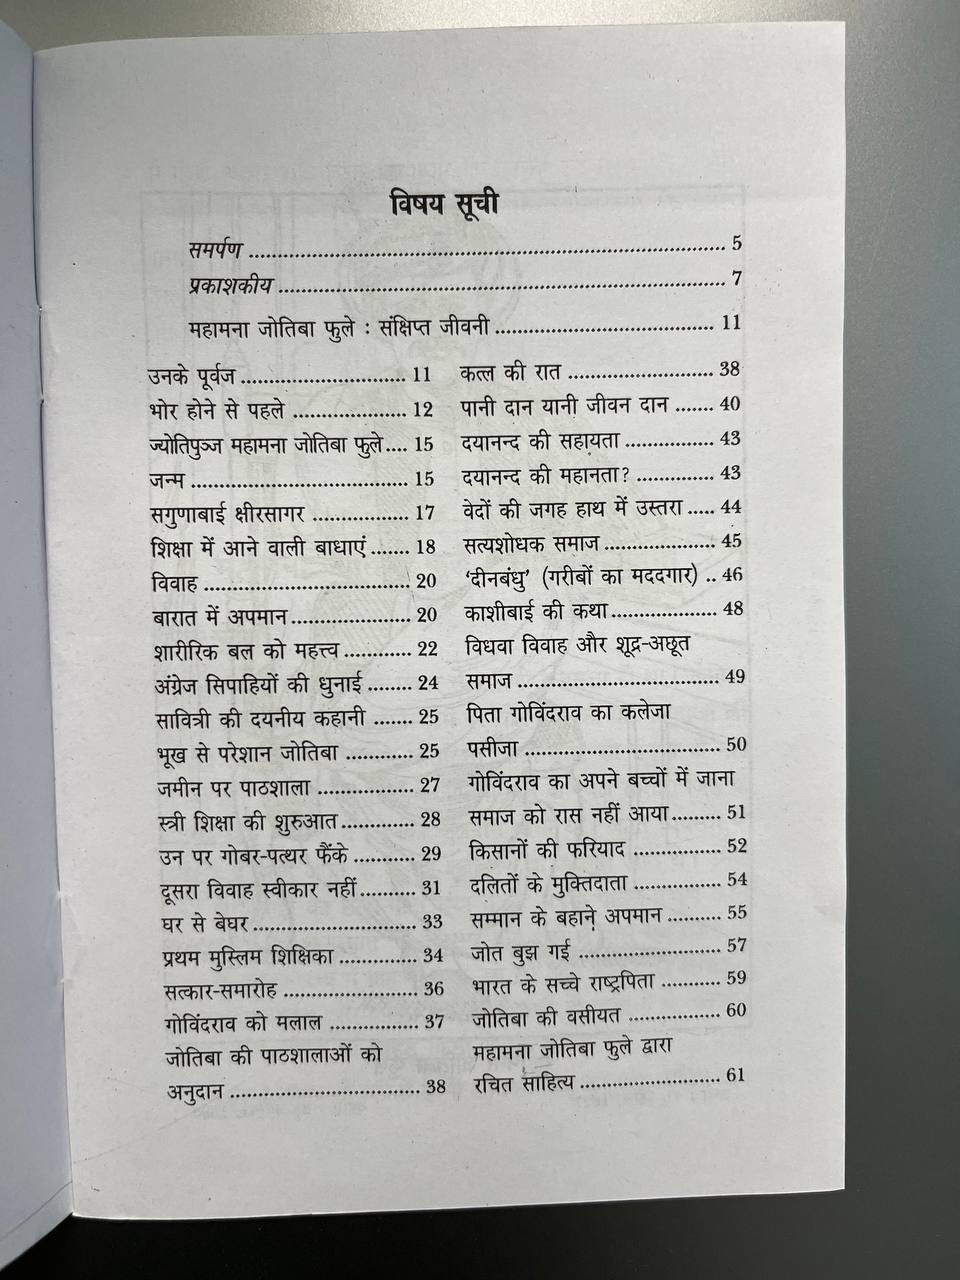 विषय सूची
समर्पण ........................................................................ 5
प्रकाशकीय .................................................................... 7
महामना जोतिबा फुले : संक्षिप्त जीवनी .................................. 11
उनके पूर्वज ............................ 11
भोर होने से पहले ................... 12
ज्योतिपुञ्ज महामना जोतिबा फुले.... 15
जन्म ..................................... 15
सगुणाबाई क्षीरसागर ................ 17
शिक्षा में आने वाली बाधाएं ....... 18
विवाह ................................... 20
बारात में अपमान ...................... 20
शारीरिक बल को महत्त्व ............ 22
अंग्रेज सिपाहियों की धुनाई ........ 24
सावित्री की दयनीय कहानी ....... 25
भूख से परेशान जोतिबा ............ 25
जमीन पर पाठशाला ................. 27
स्त्री शिक्षा की शुरुआत ............. 28
उन पर गोबर-पत्थर फैंके ........... 29
दूसरा विवाह स्वीकार नहीं .......... 31
घर से बेघर ............................ 33
प्रथम मुस्लिम शिक्षिका ............. 34
सत्कार-समारोह ....................... 36
गोविंदराव को मलाल ................ 37
जोतिबा की पाठशालाओं को
अनुदान ................................ 38
कत्ल की रात ......................... 38
पानी दान यानी जीवन दान ....... 40
दयानन्द की सहायता ................ 43
दयानन्द की महानता? .............. 43
वेदों की जगह हाथ में उस्तरा ..... 44
सत्यशोधक समाज ................... 45
‘दीनबंधु’ (गरीबों का मददगार) .. 46
काशीबाई की कथा .................. 48
विधवा विवाह और शूद्र-अछूत
समाज .................................. 49
पिता गोविंदराव का कलेजा
पसीजा ................................. 50
गोविंदराव का अपने बच्चों में जाना
समाज को रास नहीं आया ......... 51
किसानों की फरियाद ............... 52
दलितों के मुक्तिदाता ............... 54
सम्मान के बहाने अपमान .......... 55
जोत बुझ गई ........................ 57
भारत के सच्चे राष्ट्रपिता ........... 59
जोतिबा की वसीयत ................ 60
महामना जोतिबा फुले द्वारा
रचित साहित्य ........................ 61